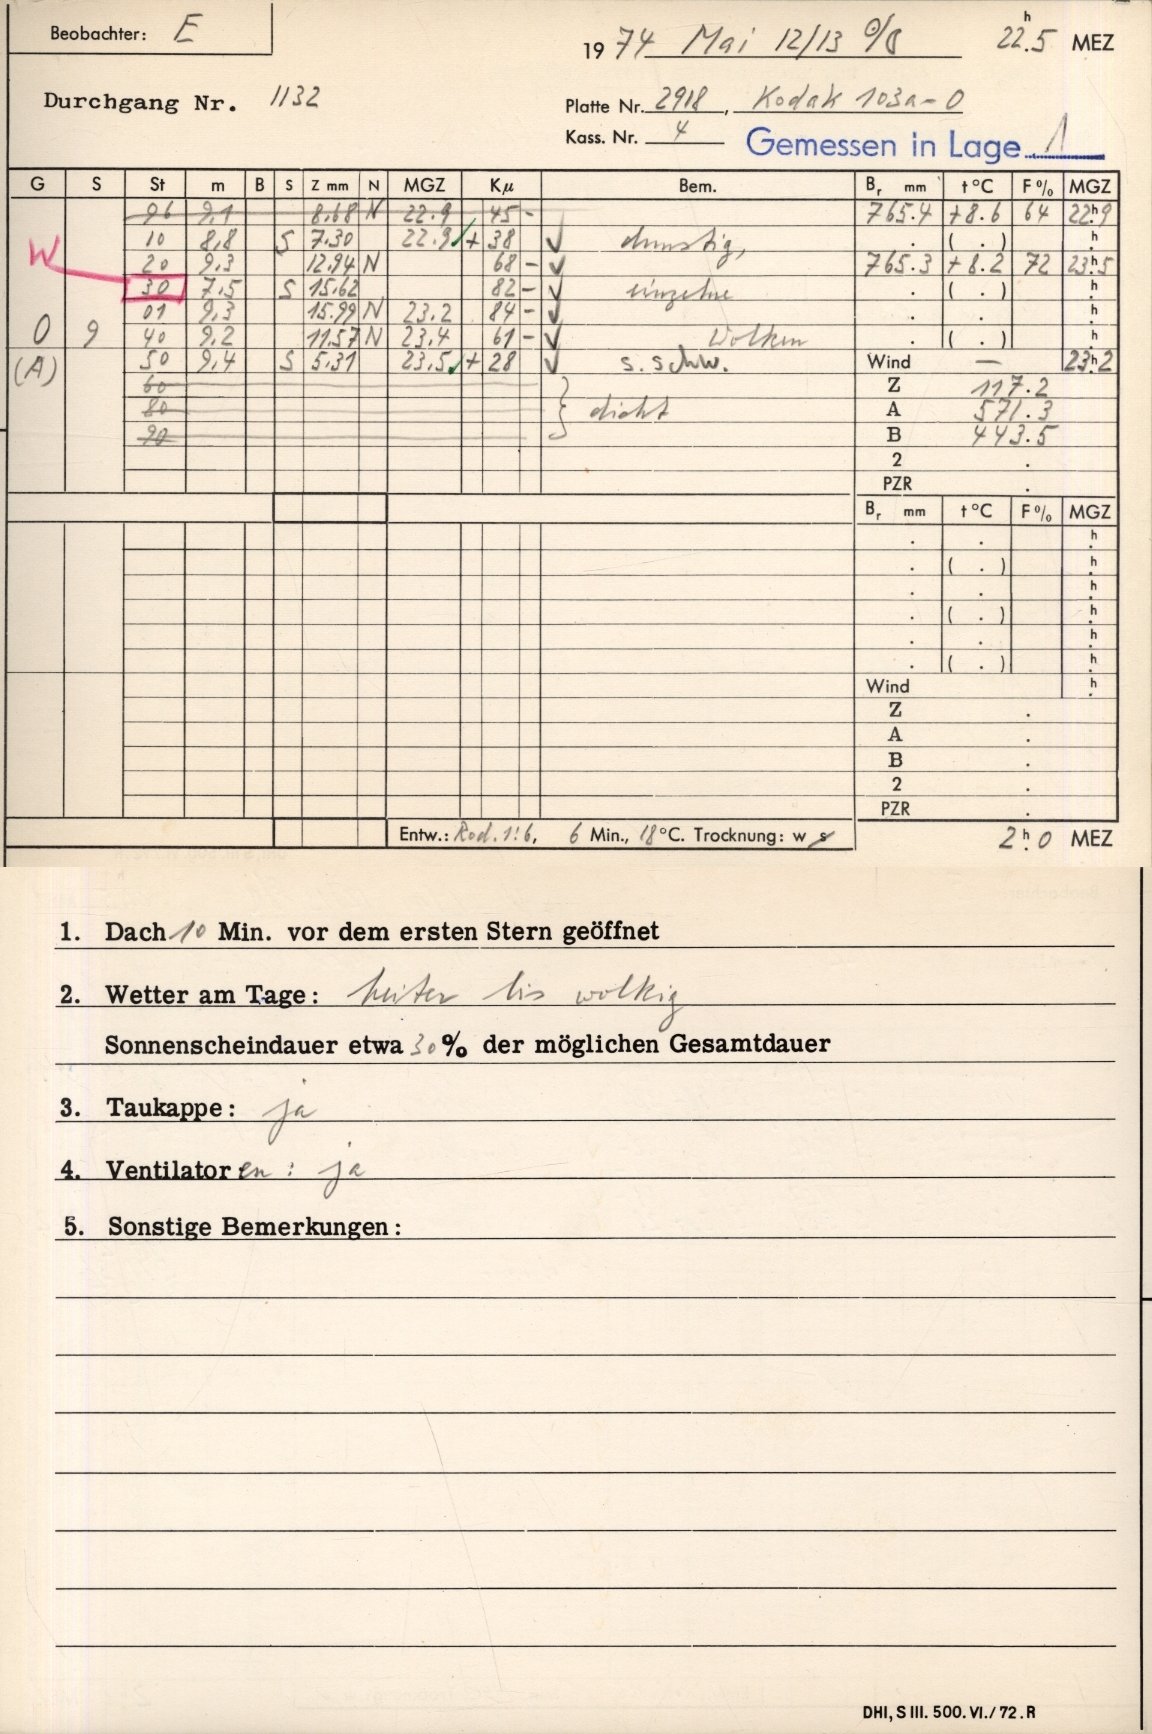 Beobachter: E
1974 Mai 12/13 22h.5 MEZ
Durchgang Nr. 1132
Platte Nr. 2918, Kodak 103a-O
Kass. Nr. 4 Gemessen in Lage 1
G S St m B S Z mm N MGZ Kμ Bem. Br mm t°C F% MGZ
96 9,1 8,68 N 22.9 45 - 765.4 +8.6 64 22h9
10 8,8 S 7.30 22.9 ✓ + 38 ✓ dunstig, . ( . ) h
W 20 9,3 12.94 N 68 - ✓ 765.3 +8.2 72 23h5
30 7,5 S 15,62 82 - ✓ einzelne . ( . ) h
01 9,3 15.99 N 23.2 84 - ✓ . . h
O 9 40 9,2 11,57 N 23,4 61 - ✓ Wolken . ( . ) h
(A) 50 9,4 S 5,31 23,5 ✓ + 28 ✓ s. schw. Wind — 23h2
60 Z 117.2
80 } dicht A 571.3
90 B 443.5
2 .
PZR .
Br mm t°C F% MGZ
. . h
. ( . ) h
. . h
. ( . ) h
. . h
. ( . ) h
Wind h
Z .
A .
B .
2 .
PZR .
Entw.: Rod. 1:6, 6 Min., 18°C. Trocknung: w s 2h.0 MEZ
1. Dach 10 Min. vor dem ersten Stern geöffnet
2. Wetter am Tage: heiter bis wolkig
Sonnenscheindauer etwa 30% der möglichen Gesamtdauer
3. Taukappe: ja
4. Ventilatoren: ja
5. Sonstige Bemerkungen:
DHI, S III. 500. VI./72. R